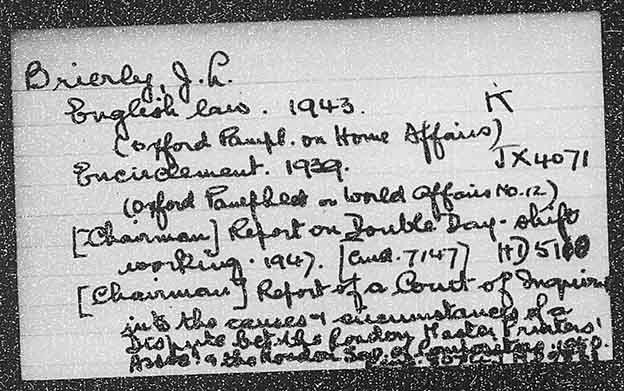 Brierly, J. L.
English law. 1943. K
(Oxford Pamph. on Home Affairs)
Encirclement. 1939. JX4071
(Oxford Pamphlet on World Affairs No. 12)
[Chairman] Report on Double Day-shift
working. 1947. [Cmd. 7147] HD5106
[Chairman] Report of a Court of Inquiry
into the causes & circumstances of a
Dispute bet. the London Master Printers'
Assoc. & the London Soc. of Compositors. 1950.